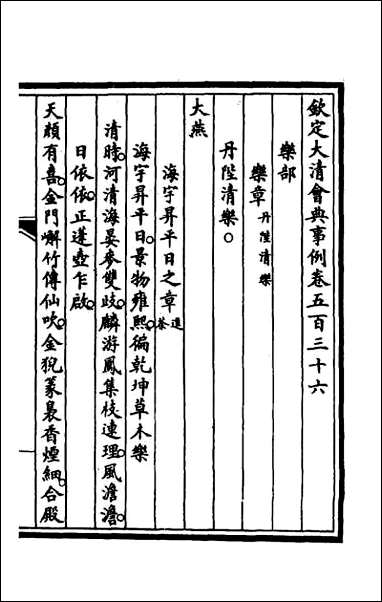 欽定大清會典事例卷五百三十六
樂部
樂章丹陛清樂
丹陛清樂○
大燕
海宇昇平日之章進茶
海宇昇平日。景物雍熙。徧乾坤草木樂
清時。河清海晏麥雙歧。麟游鳳集枝連理。風澹澹。
日依依。正蓬壺乍啟。
天顏有喜。金門嶰竹傳仙吹。金猊篆裊香煙細。合殿